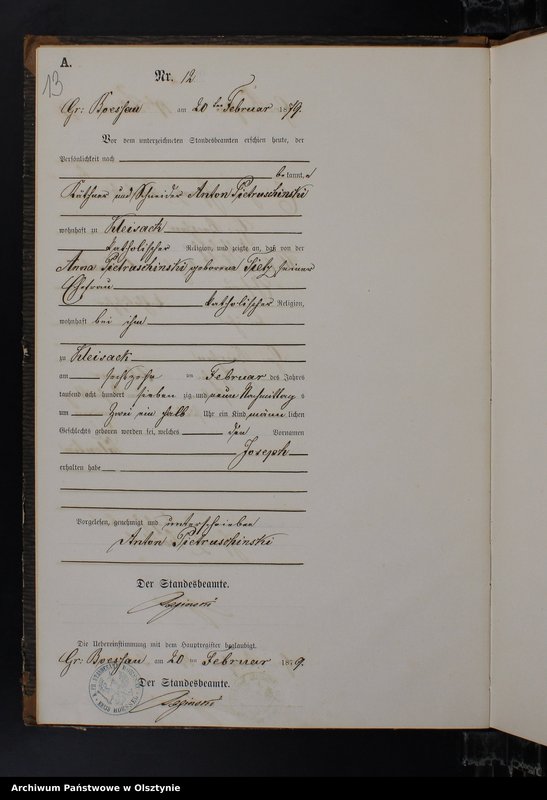 A.
13
Nr. 12
Gr: Boessau am 20 ten Februar 1879.
Vor dem unterzeichneten Standesbeamten erschien heute, der
Persönlichkeit nach
bekannt, e
Käthner und Schneider Anton Pietruschinski
wohnhaft zu Kleisack
katholischer Religion, und zeigte an, daß von der
Anna Pietruschinski geborene seiner
Ehefrau
katholischer Religion,
wohnhaft bei ihm
zu Kleisack
am sechszehn ten Februar des Jahres
tausend acht hundert sieben zig und neun Nachmittag s
um zwei ein halb Uhr ein Kind männ lichen
Geschlechts geboren worden sei, welches den Vornamen
Joseph
erhalten habe
Vorgelesen, genehmigt und unterschrieben
Anton Pietruschinski
Der Standesbeamte.
Die Uebereinstimmung mit dem Hauptregister beglaubigt.
Gr: Boessau am 20 ten Februar 1879.
Der Standesbeamte.
Archiwum Państwowe w Olsztynie